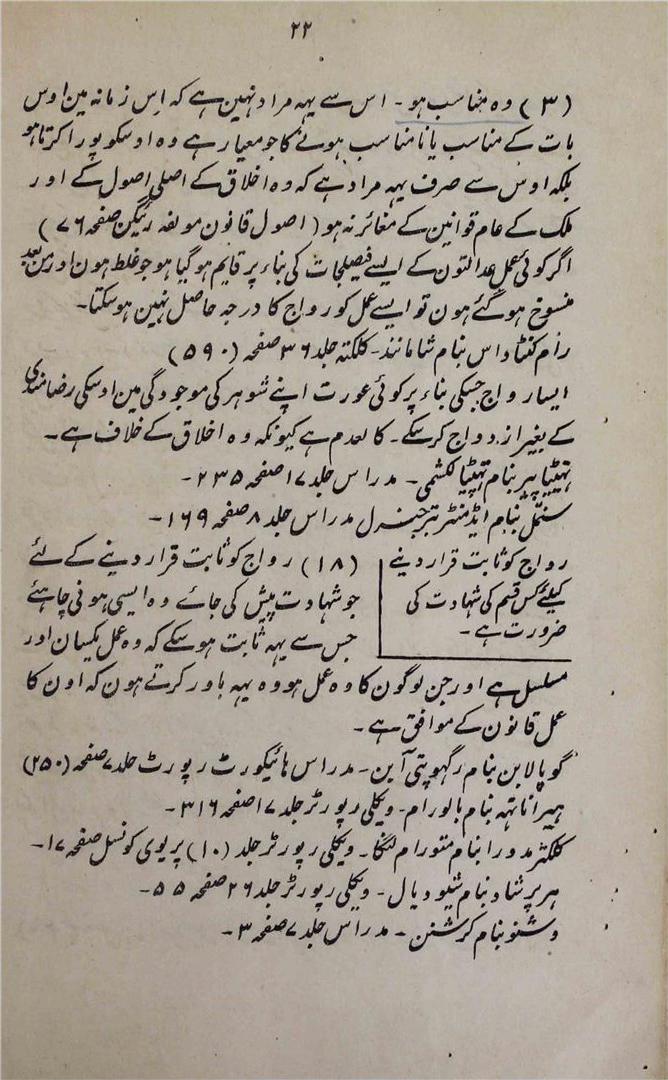 ۲۲
(۳) وہ مناسب ہو۔ اس سے یہہ مراد نہین ہے کہ اِس زمانہ مین اوس
بات کے مناسب یا نامناسب ہونے کا جو معیار ہے وہ اوسکو پورا کرتا ہو
بلکہ اوس سے صرف یہہ مراد ہے کہ وہ اخلاق کے اصلی اصول کے اور
ملک کے عام قوانین کے مغائر نہ ہو (اصول قانون مولفہ ریٹگین صفحہ ۷۶)
اگر کوئی عمل عدالتون کے ایسے فیصلجات کی بناء پر قایم ہو گیا ہو جو غلط ہون اور من بعد
منسوخ ہو گئے ہون تو ایسے عمل کو رواج کا درجہ حاصل نہین ہو سکتا۔
رام کنٹا داس بنام شامانند۔ کلکتہ جلد ۳۶ صفحہ (۵۹۰)
ایسا رواج جسکی بناء پر کوئی عورت اپنے شوہر کی موجودگی مین اوسکی رضامندی
کے بغیر ازدواج کر سکے۔ کالعدم ہے کیونکہ وہ اخلاق کے خلاف ہے۔
تہٹپا پیر بنام تہٹپا لکشمی۔ مدراس جلد ۱۷ صفحہ ۲۳۵۔
سنمّل بنام ایڈمنٹر یٹر جنرل مدراس جلد ۸ صفحہ ۱۶۹۔
رواج کو ثابت قرار دینے
کیلئے کس قسم کی شہادت کی
ضرورت ہے۔
(۱۸) رواج کو ثابت قرار دینے کے لئے
جو شہادت پیش کی جائے وہ ایسی ہونی چاہئے
جس سے یہہ ثابت ہو سکے کہ وہ عمل یکسان اور
مسلسل ہے اور جن لوگون کا وہ عمل ہو وہ یہہ باور کرتے ہون کہ اون کا
عمل قانون کے موافق ہے۔
گوپالاین بنام رگہوپتی آین۔ مدراس ہائیکورٹ رپورٹ جلد ۷ صفحہ (۲۵۰)
ہیراناتہہ بنام بالورام۔ ویکلی رپورٹر جلد ۱۷ صفحہ ۳۱۶۔
کلکٹر مدورا بنام متورام لنگا۔ ویکلی رپورٹر جلد (۱۰) پریوی کونسل صفحہ ۱۷۔
ہرپرشاد بنام شیودیال۔ ویکلی رپورٹر جلد ۲۶ صفحہ ۵۵۔
وشنو بنام کرشنن۔ مدراس جلد ۷ صفحہ ۳۔